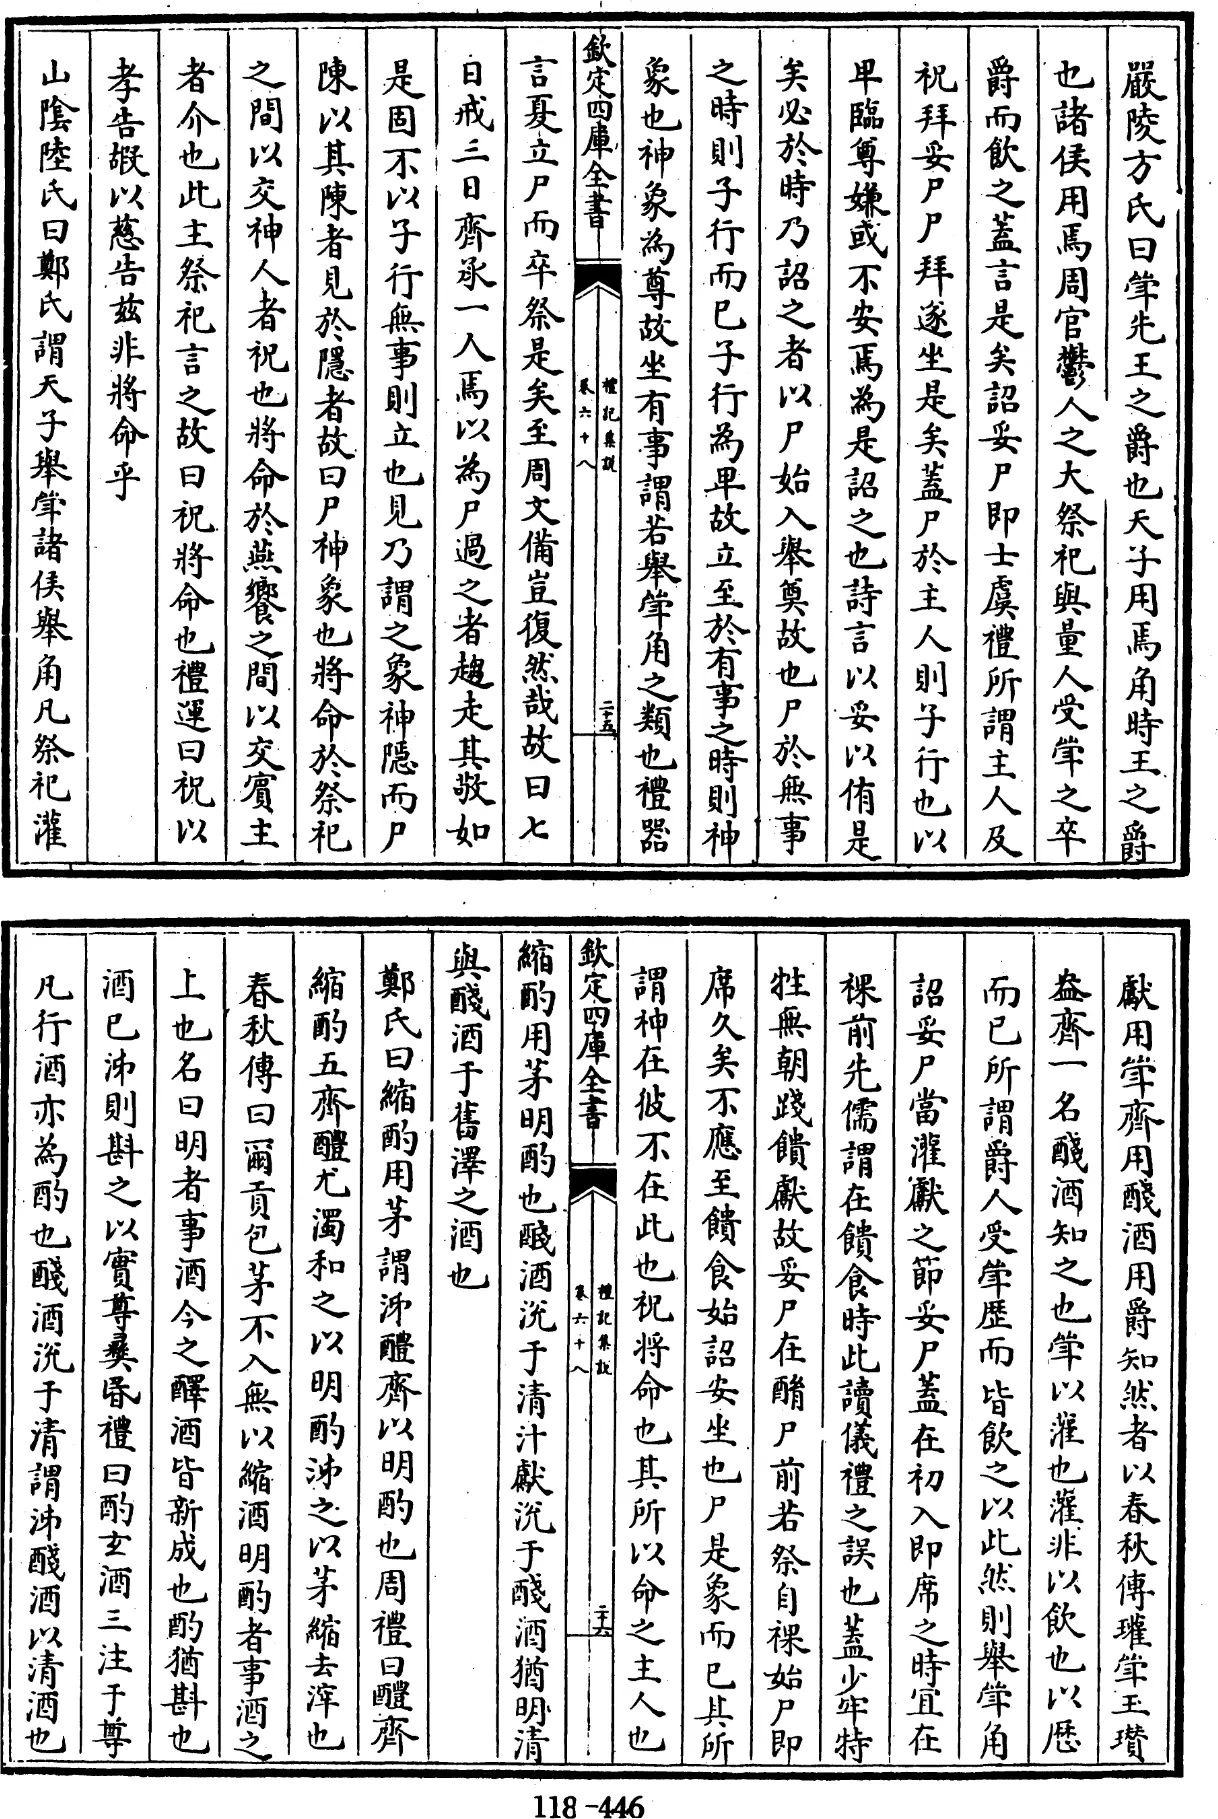 嚴陵方氏曰斝先王之爵也天子用焉角時王之爵
也諸侯用焉周官鬱人之大祭祀與量人受斝之卒
爵而飲之蓋言是矣詔妥尸即士虞禮所謂主人及
祝拜妥尸尸拜遂坐是矣蓋尸於主人則子行也以
卑臨尊嫌或不安焉為是詔之也詩言以妥以侑是
矣必於時乃詔之者以尸始入舉奠故也尸於無事
之時則子行而已子行為卑故立至於有事之時則神
象也神象為尊故坐有事謂若舉斝角之類也禮器
欽定四庫全書
禮記集說
卷六十八
二十五
言夏立尸而卒祭是矣至周文備豈復然哉故曰七
日戒三日齊承一人焉以為尸過之者趨走其敬如
是固不以子行無事則立也見乃謂之象神隱而尸
陳以其陳者見於隱者故曰尸神象也將命於祭祀
之間以交神人者祝也將命於燕饗之間以交賓主
者介也此主祭祀言之故曰祝將命也禮運曰祝以
孝告嘏以慈告茲非將命乎
山陰陸氏曰鄭氏謂天子舉斝諸侯舉角凡祭祀灌
獻用斝齊用醆酒用爵知然者以春秋傳瓘斝玉瓚
盎齊一名醆酒知之也斝以灌也灌非以飲也以歷
而已所謂爵人受斝歷而皆飲之以此然則舉斝角
詔妥尸當灌獻之節妥尸蓋在初入即席之時宜在
祼前先儒謂在饋食時此讀儀禮之誤也蓋少牢特
牲無朝踐饋獻故妥尸在酳尸前若祭自祼始尸即
席久矣不應至饋食始詔安坐也尸是象而已其所
謂神在彼不在此也祝將命也其所以命之主人也
欽定四庫全書
禮記集說
卷六十八
二十六
縮酌用茅明酌也醆酒涗于清汁獻涗于醆酒猶明清
與醆酒于舊澤之酒也
鄭氏曰縮酌用茅謂泲醴齊以明酌也周禮曰醴齊
縮酌五齊醴尤濁和之以明酌泲之以茅縮去滓也
春秋傳曰爾貢包茅不入無以縮酒明酌者事酒之
上也名曰明者事酒今之醳酒皆新成也酌猶斟也
酒已泲則斟之以實尊彝昏禮曰酌玄酒三注于尊
凡行酒亦為酌也醆酒涗于清謂泲醆酒以清酒也
118-446